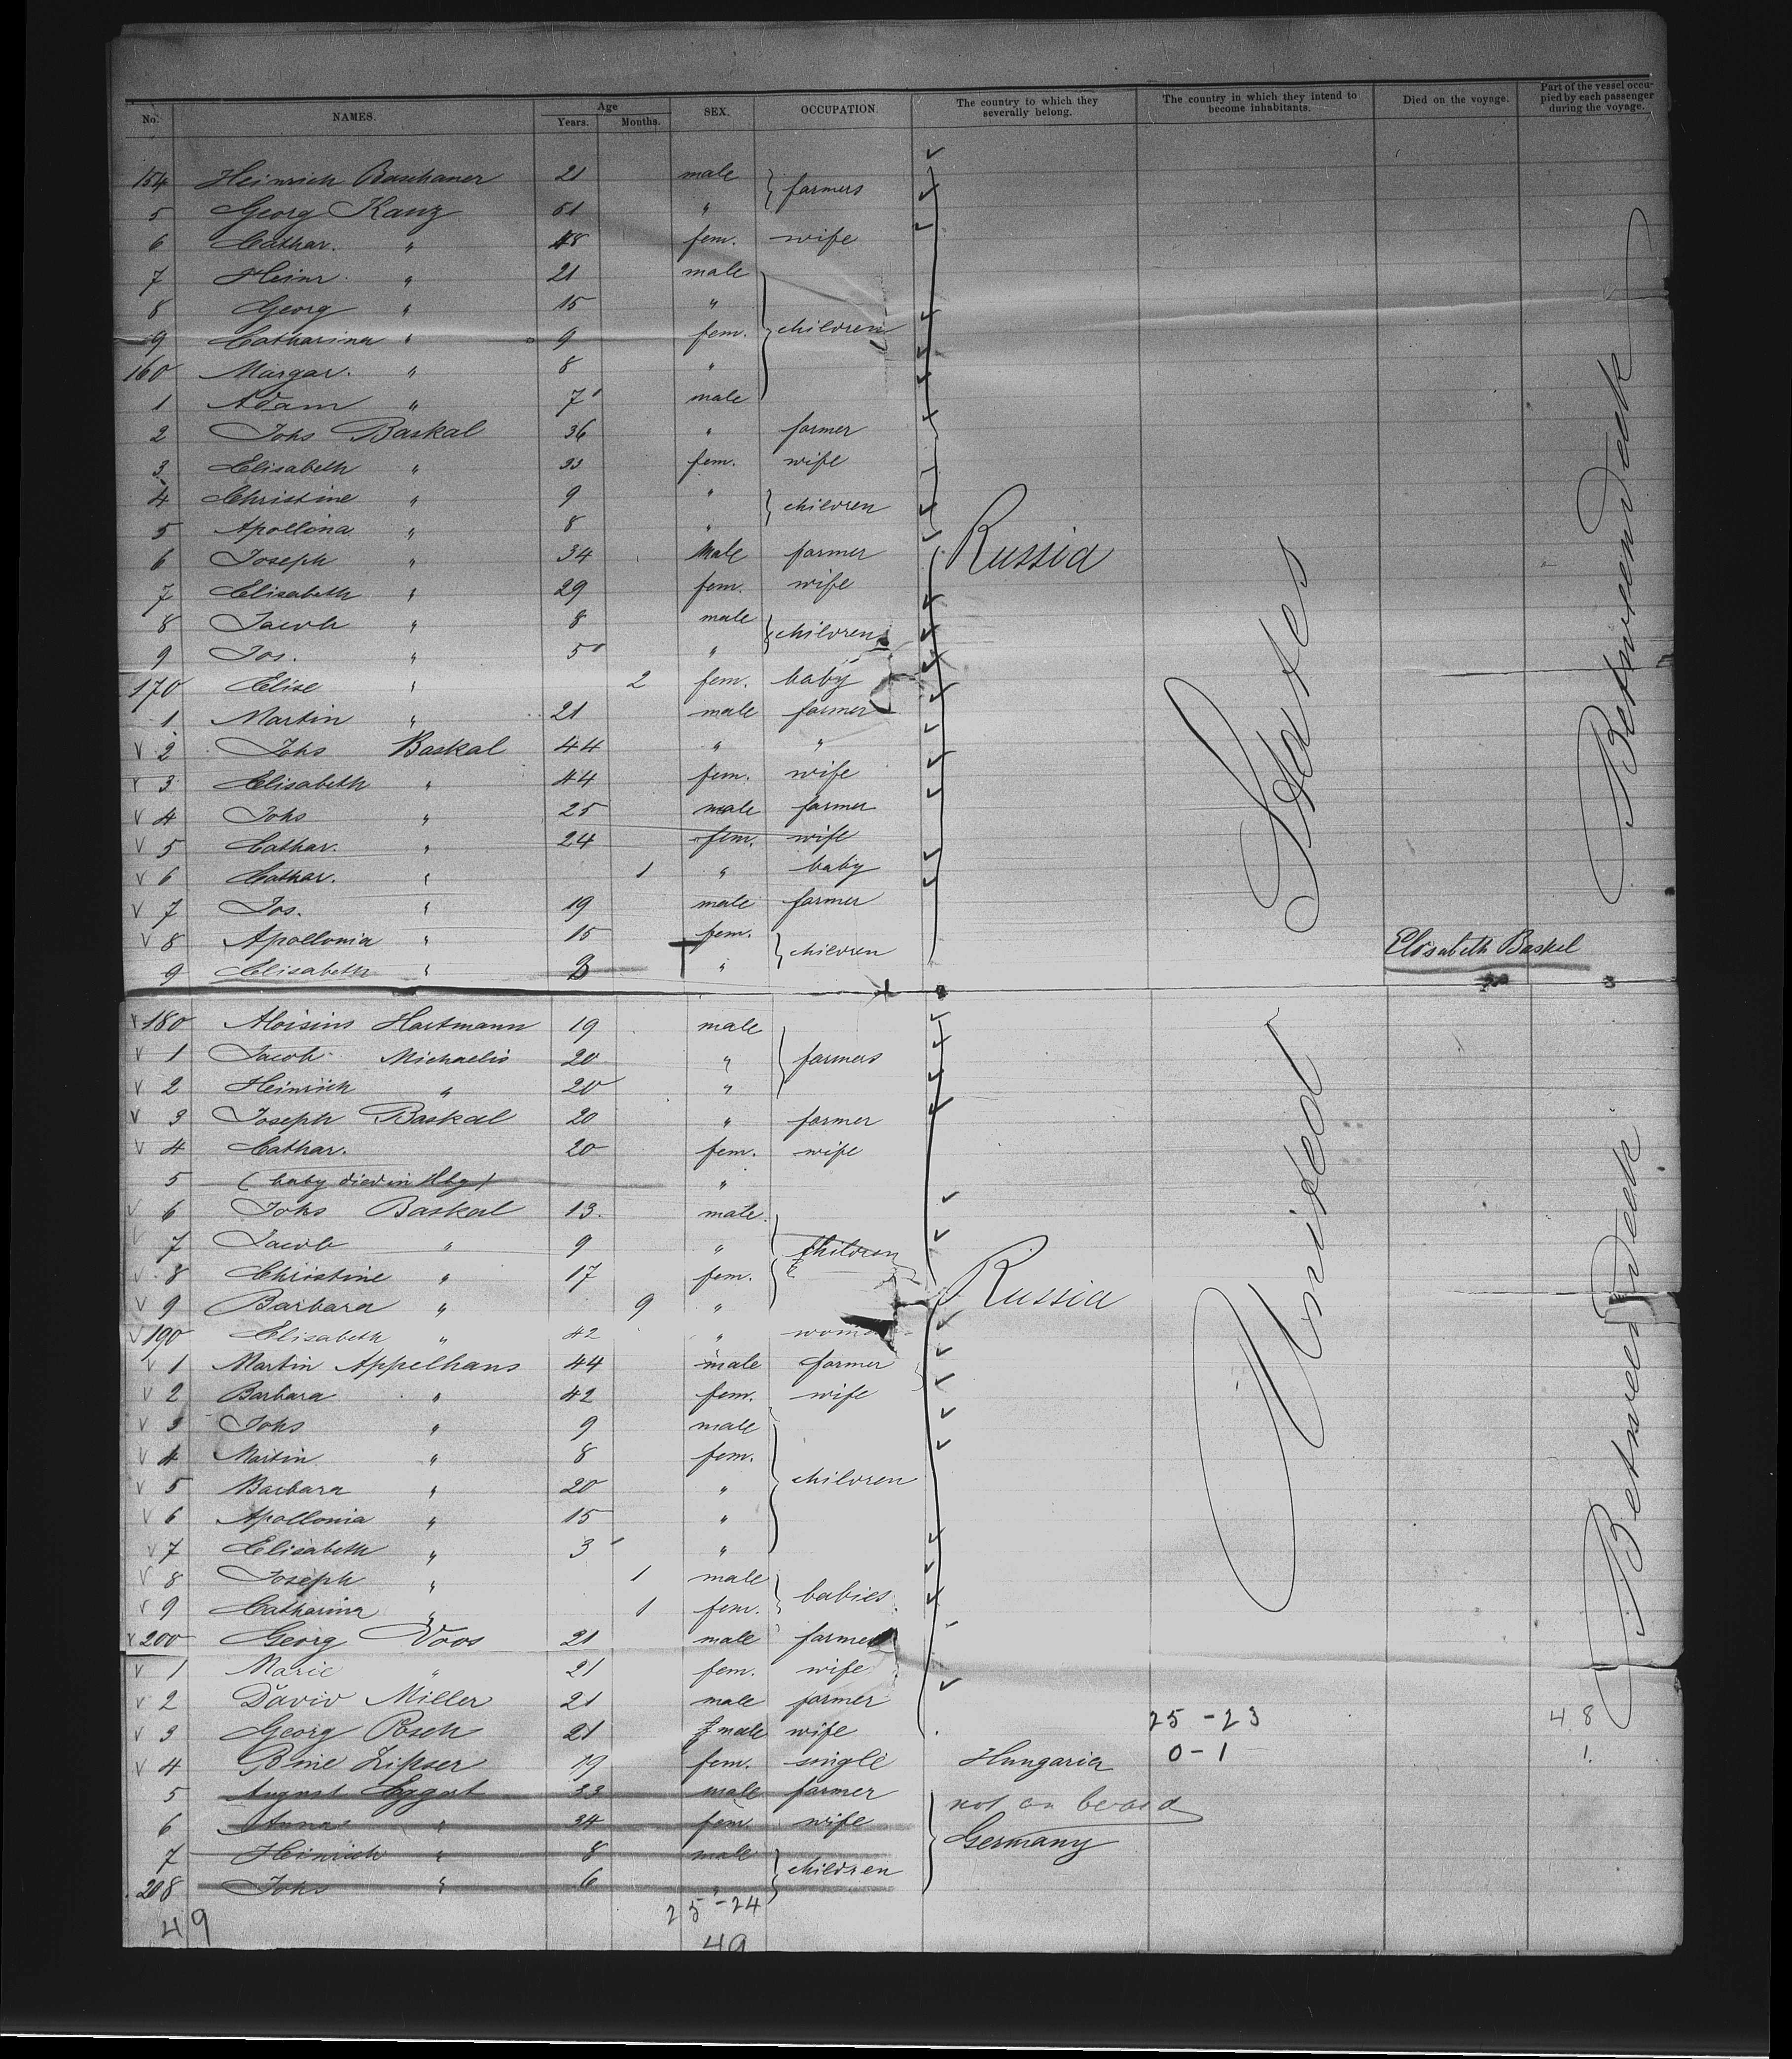 No. NAMES. Age Years. Months. SEX. OCCUPATION. The country to which they severally belong. The country in which they intend to become inhabitants. Died on the voyage. Part of the vessel occupied by each passenger during the voyage.
154 Heinrich Baschaner 21 male } farmers
5 Georg Kanz 51 "
6 Cathar. " 48 fem. wife
7 Heinr. " 21 male
8 Georg " 15 "
9 Catharina " 9 fem. } children
160 Margar. " 8 "
1 Adam " 7 male
2 Johs Baskal 36 " farmer
3 Elisabeth " 33 fem. wife
4 Christine " 9 " } children
5 Apollina " 8 "
6 Joseph " 34 Male farmer Russia
7 Elisabeth " 29 fem. wife
8 Jacob " 8 male } children
9 Jos. " 5 "
170 Elise " 2 fem. baby
1 Martin " 21 male farmer
2 Johs Baskal 44 " "
3 Elisabeth " 44 fem. wife
4 Johs " 25 male farmer
5 Cathar. " 24 fem. wife
6 Cathar. " 1 " baby
7 Jos. " 19 male farmer
8 Apollonia " 15 fem. } children Elisabeth Baskel
9 Elisabeth " 3 "
180 Aloisius Hartmann 19 male
1 Jacob Michaelis 20 " } farmers
2 Heinrich " 20 "
3 Joseph Baskal 20 " farmer
4 Cathar. 20 fem. wife
5 (baby died in Hbg) "
6 Johs Baskal 13. male
7 Jacob " 9 " } children
8 Christine " 17 fem.
9 Barbara " 9 " Russia
190 Elisabeth " 42 " woman
1 Martin Appelhans 44 male farmer
2 Barbara " 42 fem. wife
3 Johs " 9 male
4 Martin " 8 fem.
5 Barbara " 20 " } children
6 Apollonia " 15 "
7 Elisabeth " 3 "
8 Joseph " 1 male } babies
9 Catharina " 1 fem.
200 Georg Voos 21 male farmer
1 Marie " 21 fem. wife
2 David Miller 21 male farmer
3 Georg Posch 21 fmale wife 25-23 48
4 Bine Zipser 19 fem. single Hungaria 0-1 1.
5 August Eggert 33 male farmer not on board
6 Anna " 34 fem wife
7 Heinrich " 8 male } children Germany
208 Johs " 6 "
49 25-24
49
United States
Betweendeck
Betweendeck